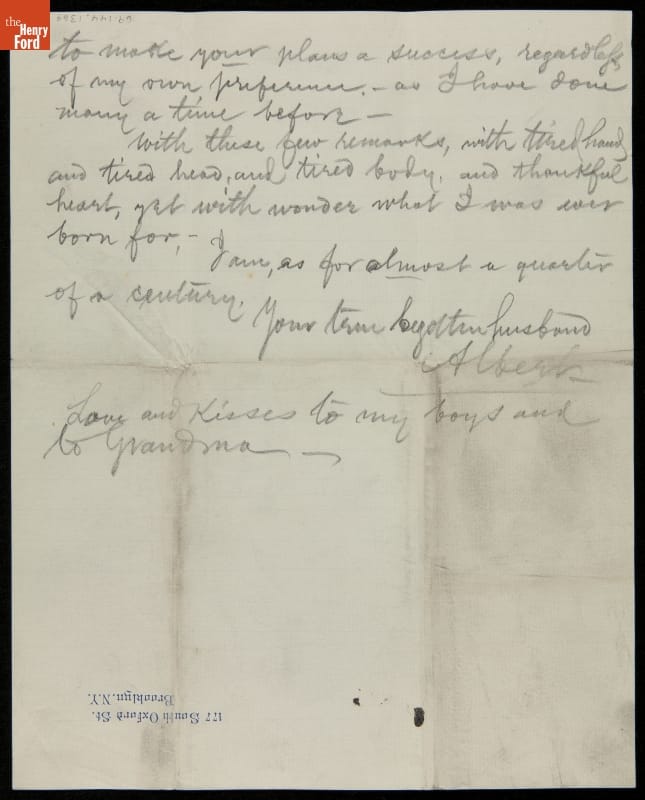 the
Henry
Ford
69.144.1369
to make your plans a success, regardless
of my own preference. - as I have done
many a time before -
With these few remarks, with tired hand
and tired head, and tired body, and thankful
heart, yet with wonder what I was ever
born for, - I am, as for almost a quarter
of a century,
Your husband
Albert
Love and Kisses to my boys and
to Grandma -
177 South Oxford St.
Brooklyn, N.Y.